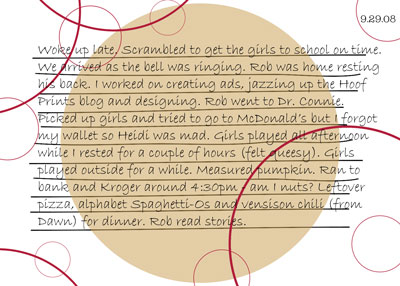 9.29.08
Woke up late, Scrambled to get the girls to school on time.
We arrived as the bell was ringing. Rob was home resting
his back. I worked on creating ads, jazzing up the Hoof
Prints blog and designing. Rob went to Dr. Connie.
Picked up girls and tried to go to McDonald's but I forgot
my wallet so Heidi was mad. Girls played all afternoon
while I rested for a couple of hours (felt queesy). Girls
played outside for a while. Measured pumpkin. Ran to
bank and Kroger around 4:30pm - am I nuts? Leftover
pizza, alphabet Spaghetti-Os and vensison chili (from
Dawn) for dinner. Rob read stories.